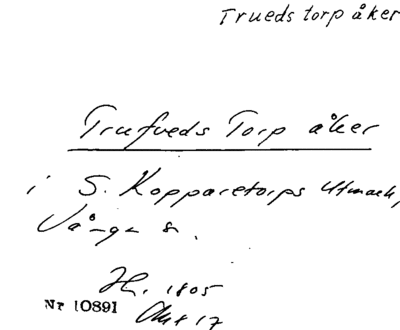 Trueds torp åker
Trufveds Torp åker
i S. Kopparetorps Utmark,
Vånga s.
H. 1805
Nr 10891 Akt 17